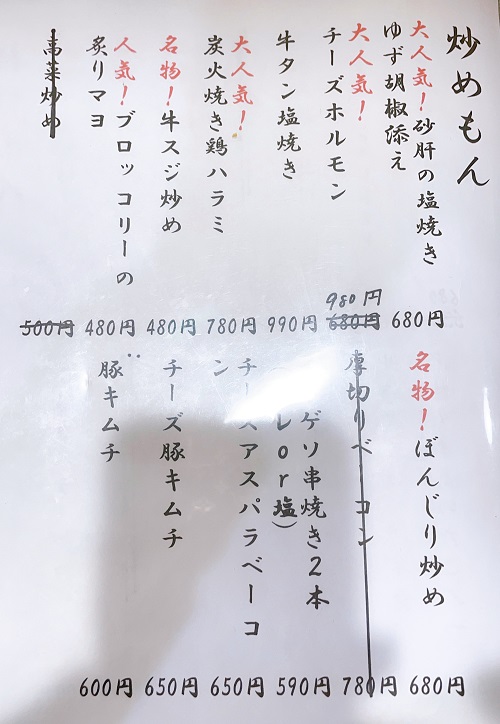 炒めもん
大人気！砂肝の塩焼き
ゆず胡椒添え
680円
大人気！
チーズホルモン
980円
680円
牛タン塩焼き
990円
大人気！
炭火焼き鶏ハラミ
780円
名物！牛スジ炒め
480円
人気！ブロッコリーの
炙りマヨ
480円
高菜炒め
500円
名物！ぼんじり炒め
680円
厚切りベーコン
780円
ゲソ串焼き2本
or塩）
590円
チーズアスパラベーコ
ン
650円
チーズ豚キムチ
650円
豚キムチ
600円